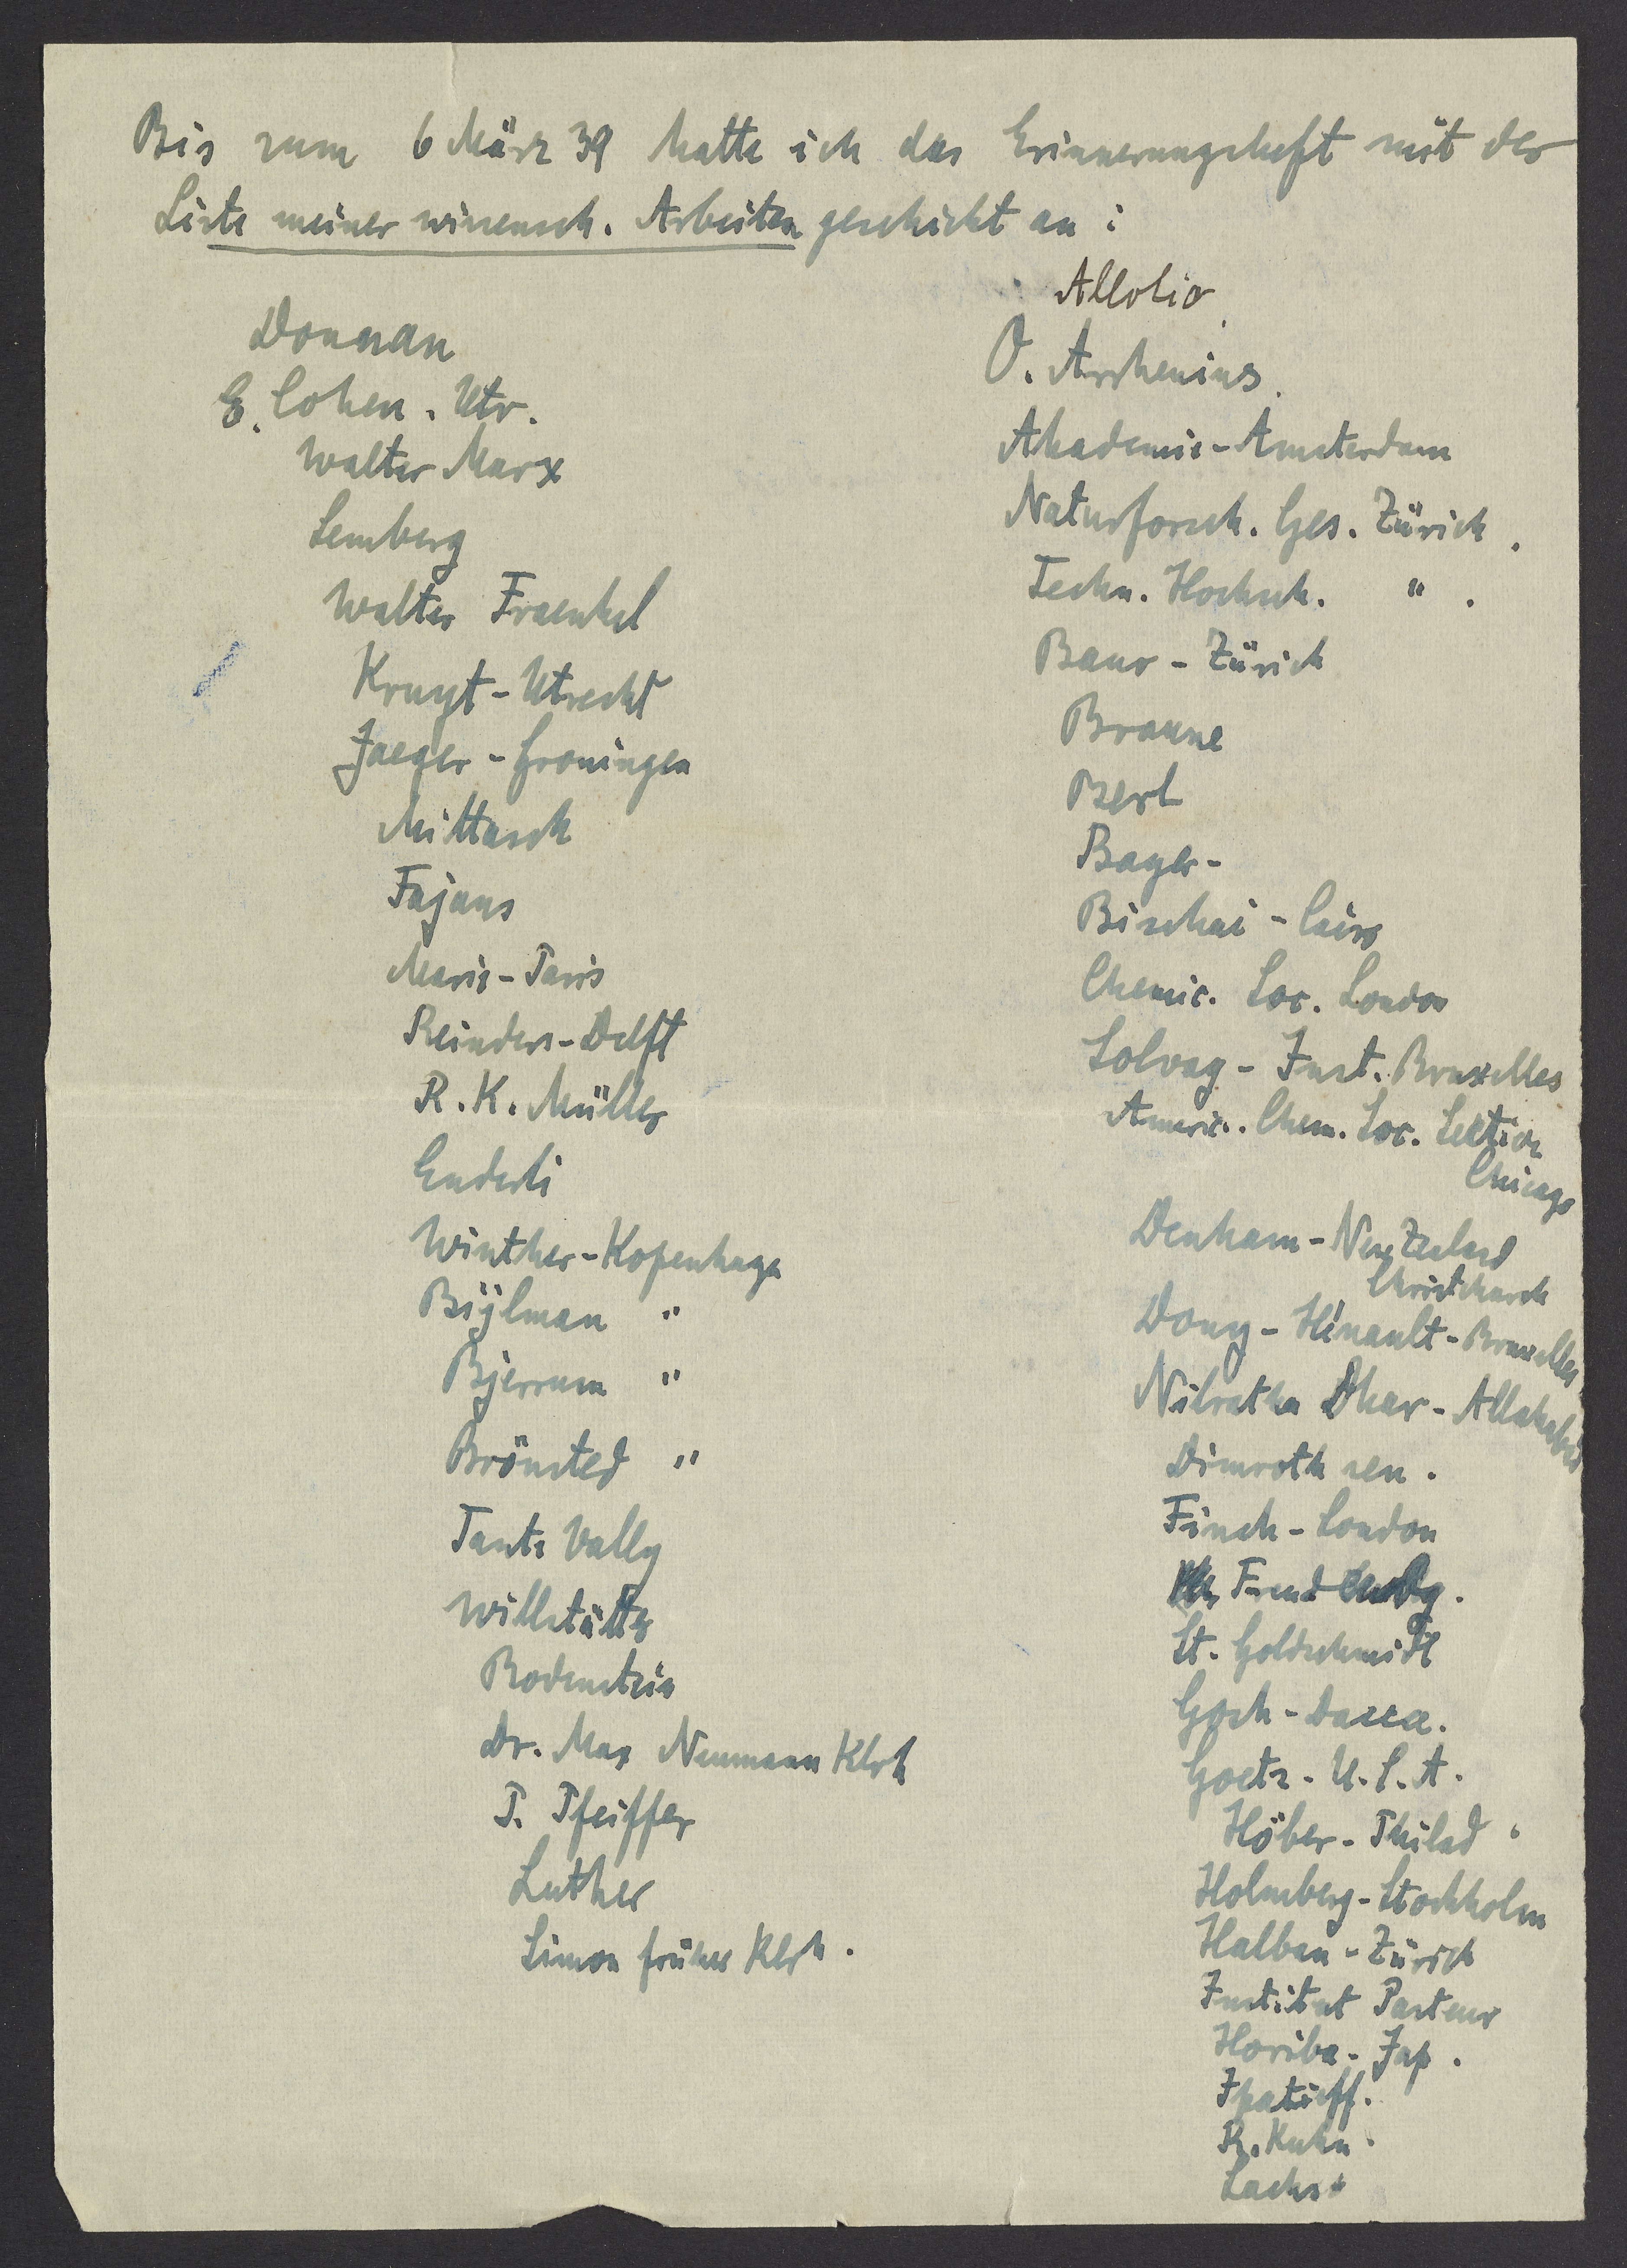 Bis zum 6 März 39 hatte ich das Erinnerungsheft mit der
Liste meiner wissensch. Arbeiten geschickt an :
Donnan
E. Cohen. Utr.
Walter Marx
Lemberg
Walter Fraenkel
Kruyt - Utrecht
Jaeger - Groningen
Mittasch
Fajans
Marie - Paris
Reinders - Delft
R. K. Müller
Enderli
Winther - Kopenhagen
Biijlman "
Bjerrum "
Brönsted "
Tante Vally
Willstätter
Bodenstein
Dr. Max Neumann Klrh
P. Pfeiffer
Luther
Simon früher Klrh.
Allolio
O. Arrhenius.
Akademie - Amsterdam
Naturforsch. Ges. Zürich.
Techn. Hochsch. " .
Baur - Zürich
Braune
Berl
Bayer -
Bischai - Cairo
Chemic. Soc. London
Solvay - Inst. Bruxelles
Americ. Chem. Soc. Sektion
Chicago
Denham - New Zealand
Christchurch
Dony - Hénault - Bruxelles
Nilratha Dhar - Allahabad
Dimroth sen.
Finch - London
Freudenbg.
St. Goldschmidt
Gosh - Dacca.
Goetz - U.S.A.
Höber - Philad.
Holmberg - Stockholm
Halban - Zürich
Institut Pasteur
Horiba - Jap.
Ipatieff.
R. Kuhn.
Lachs.